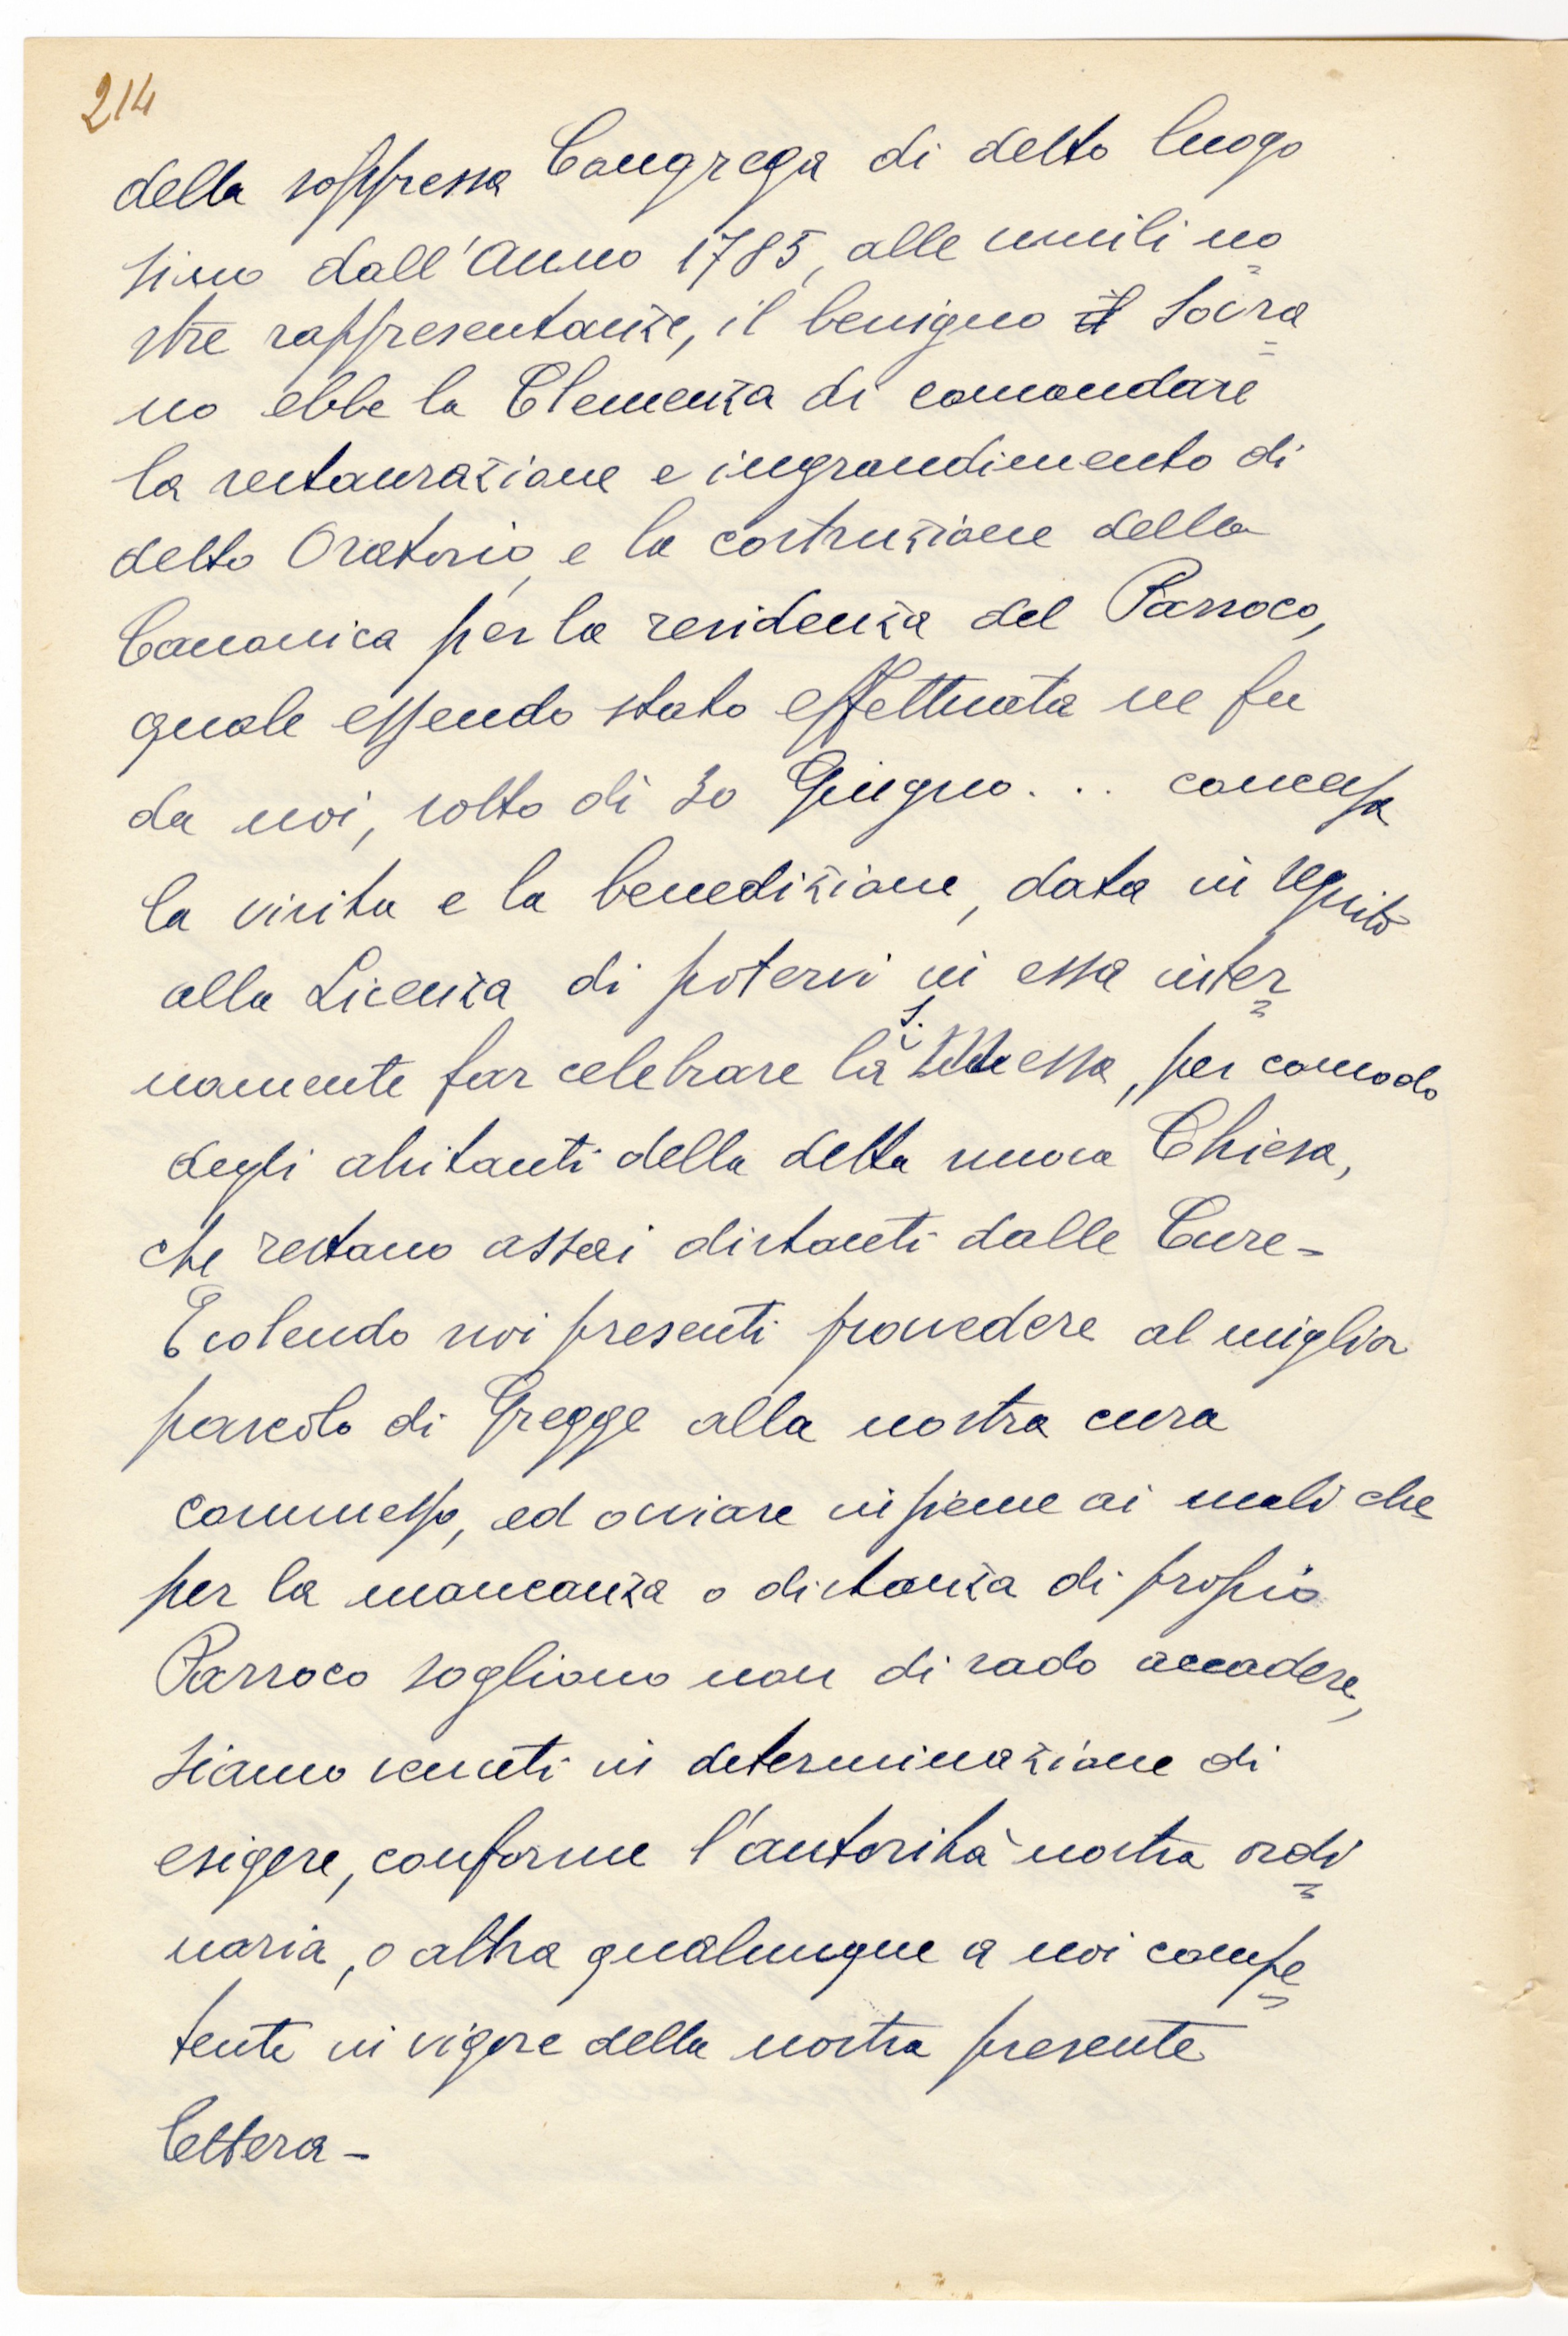 214
della soppressa Congrega di detto luogo
sino dall'Anno 1785, alle umili no=
stre rappresentanze, il benigno il Sovra=
no ebbe la Clemenza di comandare
la restaurazione e ingrandimento di
detto Oratorio, e la costruzione della
Canonica per la residenza del Parroco,
quale essendo stato effettuata ne fu
da noi, sotto di 30 Giugno... concessa
la visita e la benedizione, data in seguito
alla Licenza di potervi in essa inter=
namente far celebrare la S. Messa, per comodo
degli abitanti della detta nuova Chiesa,
che restano assai distanti dalle Cure-
E volendo noi presenti provvedere al miglior
pascolo di Gregge alla nostra cura
commesso, ed ovviare insieme ai mali che
per la mancanza o distanza di proprio
Parroco sogliono non di rado accadere,
siamo venuti in determinazione di
esigere, conforme l'autorità nostra ordi=
naria, o altra qualunque a noi compe=
tente in vigore della nostra presente
lettera-